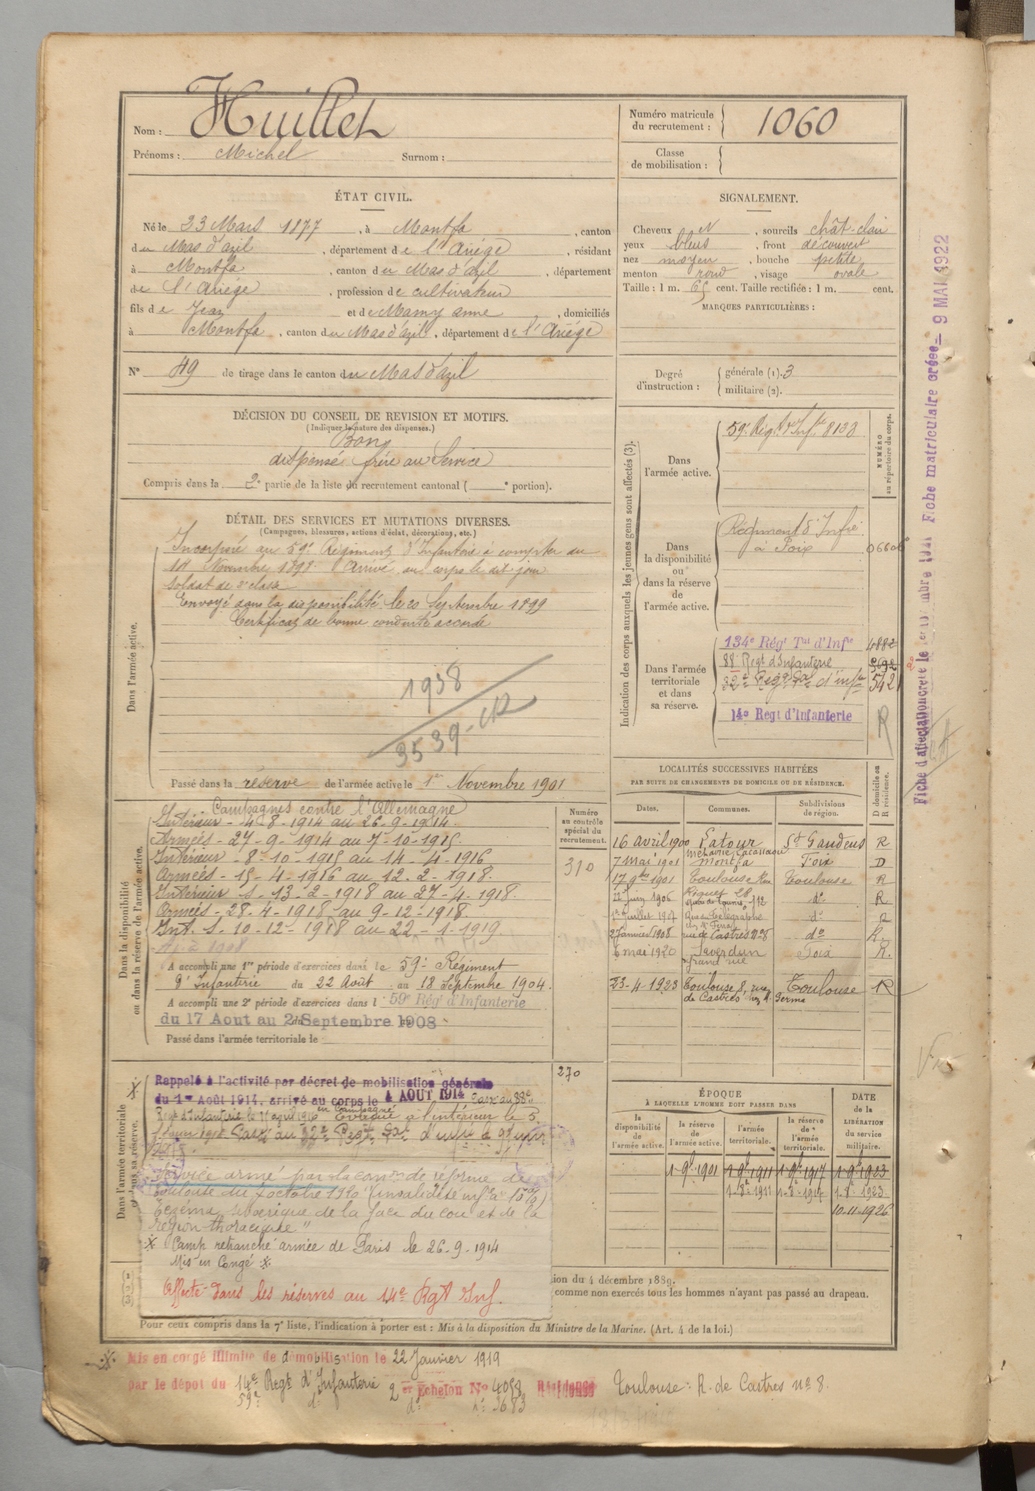 Nom : Huillet
Prénoms : Michel Surnom :
Numéro matricule du recrutement : 1060
Classe de mobilisation :
ÉTAT CIVIL.
Né le 23 Mars 1877, à Montfa, canton
du Mas d'azil, département de l'Ariège, résidant
à Montfa, canton du Mas d'azil, département
de l'Ariège, profession de cultivateur
fils de Jean et de Mamy anne, domiciliés
à Montfa, canton du Mas d'azil, département de l'Ariège
N° 49 de tirage dans le canton du Mas d'azil
SIGNALEMENT.
Cheveux N, sourcils chât-clair
yeux bleus, front découvert
nez moyen, bouche petite
menton rond, visage ovale
Taille : 1 m. 65 cent. Taille rectifiée : 1 m. cent.
MARQUES PARTICULIÈRES :
Degré d'instruction : générale (1). 3
militaire (2).
DÉCISION DU CONSEIL DE REVISION ET MOTIFS.
(Indiquer la nature des dispenses.)
Bon
dispensé frère au Service
Compris dans la 2e partie de la liste du recrutement cantonal ( e portion).
DÉTAIL DES SERVICES ET MUTATIONS DIVERSES.
(Campagnes, blessures, actions d'éclat, décorations, etc.)
Dans l'armée active.
Incorporé au 59e Régiment d'Infanterie à compter du
Novembre 1898 Arrivé au corps le dit jour
soldat de 2e classe
Envoyé dans la disponibilité le 20 Septembre 1899
Certificat de bonne conduite accordé
1938
3539
Passé dans la réserve de l'armée active le 1er Novembre 1901
Indication des corps auxquels les jeunes gens sont affectés (3).
NUMÉRO au répertoire du corps.
Dans l'armée active.
59e Régt d'Infie 8133
Dans la disponibilité ou dans la réserve de l'armée active.
Régiment d'Infie
à Foix
Dans l'armée territoriale et dans sa réserve.
134e Régt Tal d'Infie 4882
88 Régt d'Infanterie
82e Régt d'infie 5421
14e Régt d'Infanterie R
LOCALITÉS SUCCESSIVES HABITÉES
PAR SUITE DE CHANGEMENTS DE DOMICILE OU DE RÉSIDENCE.
Dates. Communes. Subdivisions de région. D domicile ou R résidence.
16 avril 1900 Latour St Gaudens R
7 mai 1901 Montfa Foix D
17 9bre 1901 Toulouse Toulouse R
1906 do R
juillet 1907 do R
2 Janvier 1908 rue de Castres do R
6 mai 1920 Saverdun Grand rue Foix R.
23-4-1923 Toulouse 8, rue de Castres Toulouse R
Dans la disponibilité ou dans la réserve de l'armée active.
Numéro au contrôle spécial du recrutement.
310
Campagnes contre l'Allemagne
Intérieur - 4-8-1914 au 26-9-1914.
Armées - 27-9-1914 au 7-10-1915
Intérieur - 8-10-1915 au 14-4-1916
Armées - 15-4-1916 au 12-2-1918.
Intérieur S. 13-2-1918 au 27-4-1918.
Armées - 28-4-1918 au 9-12-1918
Int. S. 10-12-1918 au 22-1-1919
A accompli une 1re période d'exercices dans le 59e Régiment
d'Infanterie du 22 Août au 18 Septembre 1904.
A accompli une 2e période d'exercices dans l 59e Rég d'Infanterie
du 17 Aout au Septembre 1908
Passé dans l'armée territoriale le
Dans l'armée territoriale et dans sa réserve.
270
Rappelé à l'activité par décret de mobilisation générale
du 1er Août 1914, arrivé au corps le 4 AOUT 1914 Passé au 88e
Regt d'Infanterie le 15 avril 1916 en Campagne Evolué à l'intérieur le
Service armé par la com de réforme de
Toulouse du 7 octobre 1919 "invalidité infre à 15%
Eczéma séborrhéique de la face du cou et de la
région thoracique"
Camp retranché armée de Paris le 26-9-1914
Mis en Congé
Affecté dans les réserves au 14e Rgt Inf.
ÉPOQUE
À LAQUELLE L'HOMME DOIT PASSER DANS
la disponibilité de l'armée active. la réserve de l'armée active. l'armée territoriale. la réserve de l'armée territoriale.
DATE de la LIBÉRATION du service militaire.
1-9b-1901 1-9b-1911 1-9b-1917 1-9b-1923
1-8-1911 1-8-1917 1-8-1923
10-11-1926
ion du 4 décembre 1889.
comme non exercés tous les hommes n'ayant pas passé au drapeau.
Pour ceux compris dans la 7e liste, l'indication à porter est : Mis à la disposition du Ministre de la Marine. (Art. 4 de la loi.)
Mis en congé illimité de démobilisation le 22 Janvier 1919
par le dépôt du 14e Regt d'Infanterie 2e Echelon No 4098 Toulouse R. de Castres no 8.
59e d° d° n° 3683
Fiche matriculaire créée 9 MAI 1922